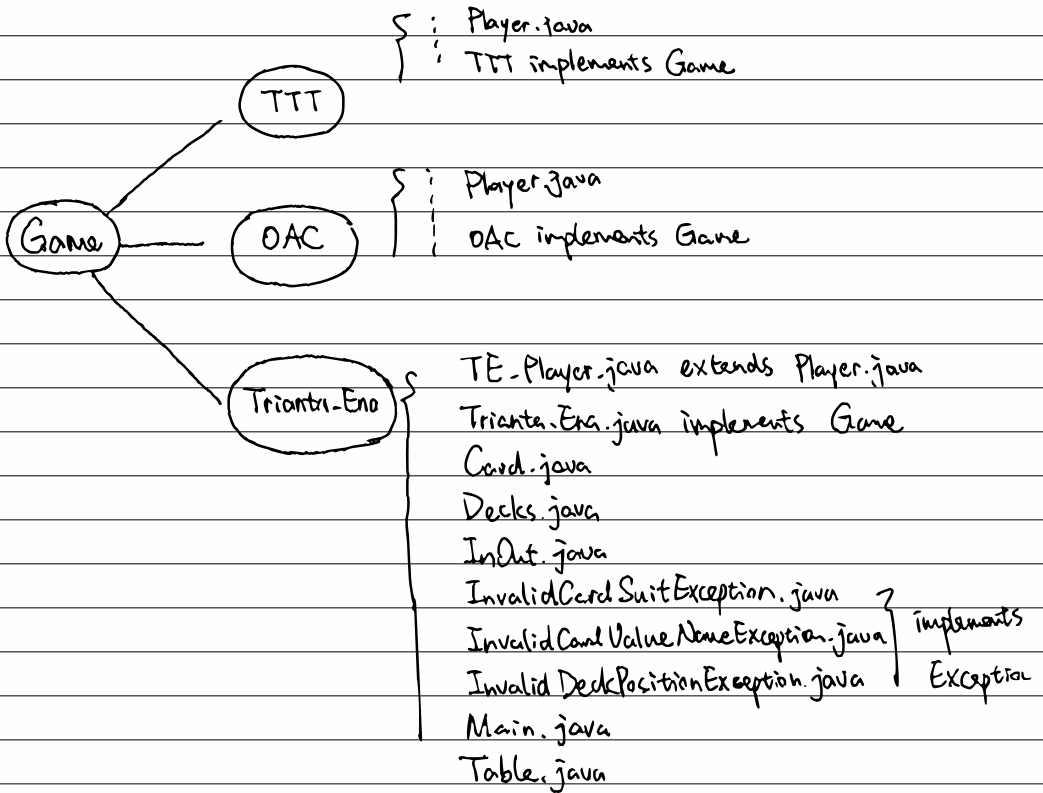 Player.java
TTT implements Game
TTT
Player.java
Game
OAC
OAC implements Game
TE_Player.java extends Player.java
Trianta_Ena
Trianta_Ena.java implements Game
Card.java
Decks.java
InOut.java
InvalidCardSuitException.java
InvalidCardValueNameException.java
implements
InvalidDeckPositionException.java
Exception
Main.java
Table.java